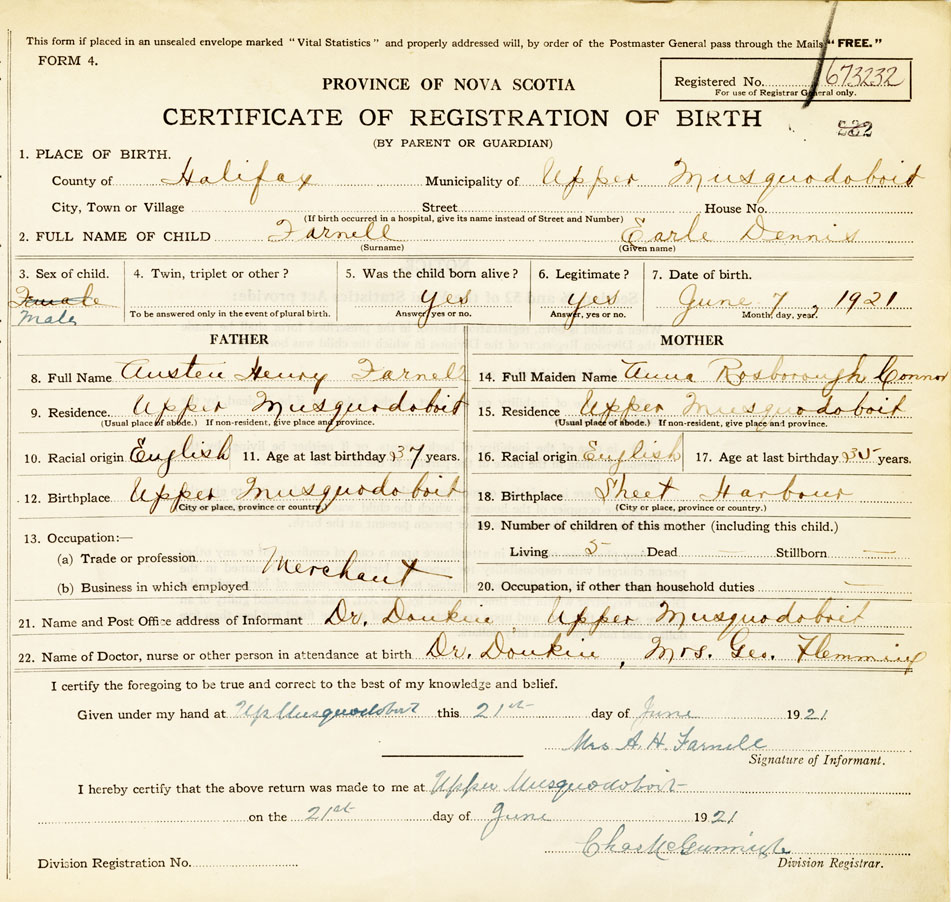 This form if placed in an unsealed envelope marked "Vital Statistics" and properly addressed will, by order of the Postmaster General pass through the Mails "FREE."
FORM 4.
Registered No. 673232
For use of Registrar General only.
PROVINCE OF NOVA SCOTIA
CERTIFICATE OF REGISTRATION OF BIRTH
(BY PARENT OR GUARDIAN)
1. PLACE OF BIRTH.
County of Halifax Municipality of Upper Musquodoboit
City, Town or Village Street House No.
(If birth occurred in a hospital, give its name instead of Street and Number)
2. FULL NAME OF CHILD Farnell Earle Dennis
(Surname) (Given name)
3. Sex of child. 4. Twin, triplet or other? 5. Was the child born alive? 6. Legitimate? 7. Date of birth.
Female Yes Yes June 7, 1921
Male To be answered only in the event of plural birth. Answer, yes or no. Answer, yes or no. Month, day, year.
FATHER MOTHER
8. Full Name Austen Henry Farnell 14. Full Maiden Name Anna Rosborough Connor
9. Residence. Upper Musquodoboit 15. Residence Upper Musquodoboit
(Usual place of abode.) If non-resident, give place and province. (Usual place of abode.) If non-resident, give place and province.
10. Racial origin English 11. Age at last birthday 37 years. 16. Racial origin English 17. Age at last birthday 35 years.
12. Birthplace Upper Musquodoboit 18. Birthplace Sheet Harbour
(City or place, province or country.) (City or place, province or country.)
13. Occupation:— 19. Number of children of this mother (including this child.)
(a) Trade or profession Merchant Living 5 Dead — Stillborn —
(b) Business in which employed 20. Occupation, if other than household duties —
21. Name and Post Office address of Informant Dr. Donkin, Upper Musquodoboit
22. Name of Doctor, nurse or other person in attendance at birth Dr. Donkin, Mrs. Geo. Flemming
I certify the foregoing to be true and correct to the best of my knowledge and belief.
Given under my hand at Up Musquodoboit this 21st day of June 1921
Mrs A. H. Farnell
Signature of Informant.
I hereby certify that the above return was made to me at Upper Musquodoboit
on the 21st day of June 1921
Chas
Division Registration No. Division Registrar.